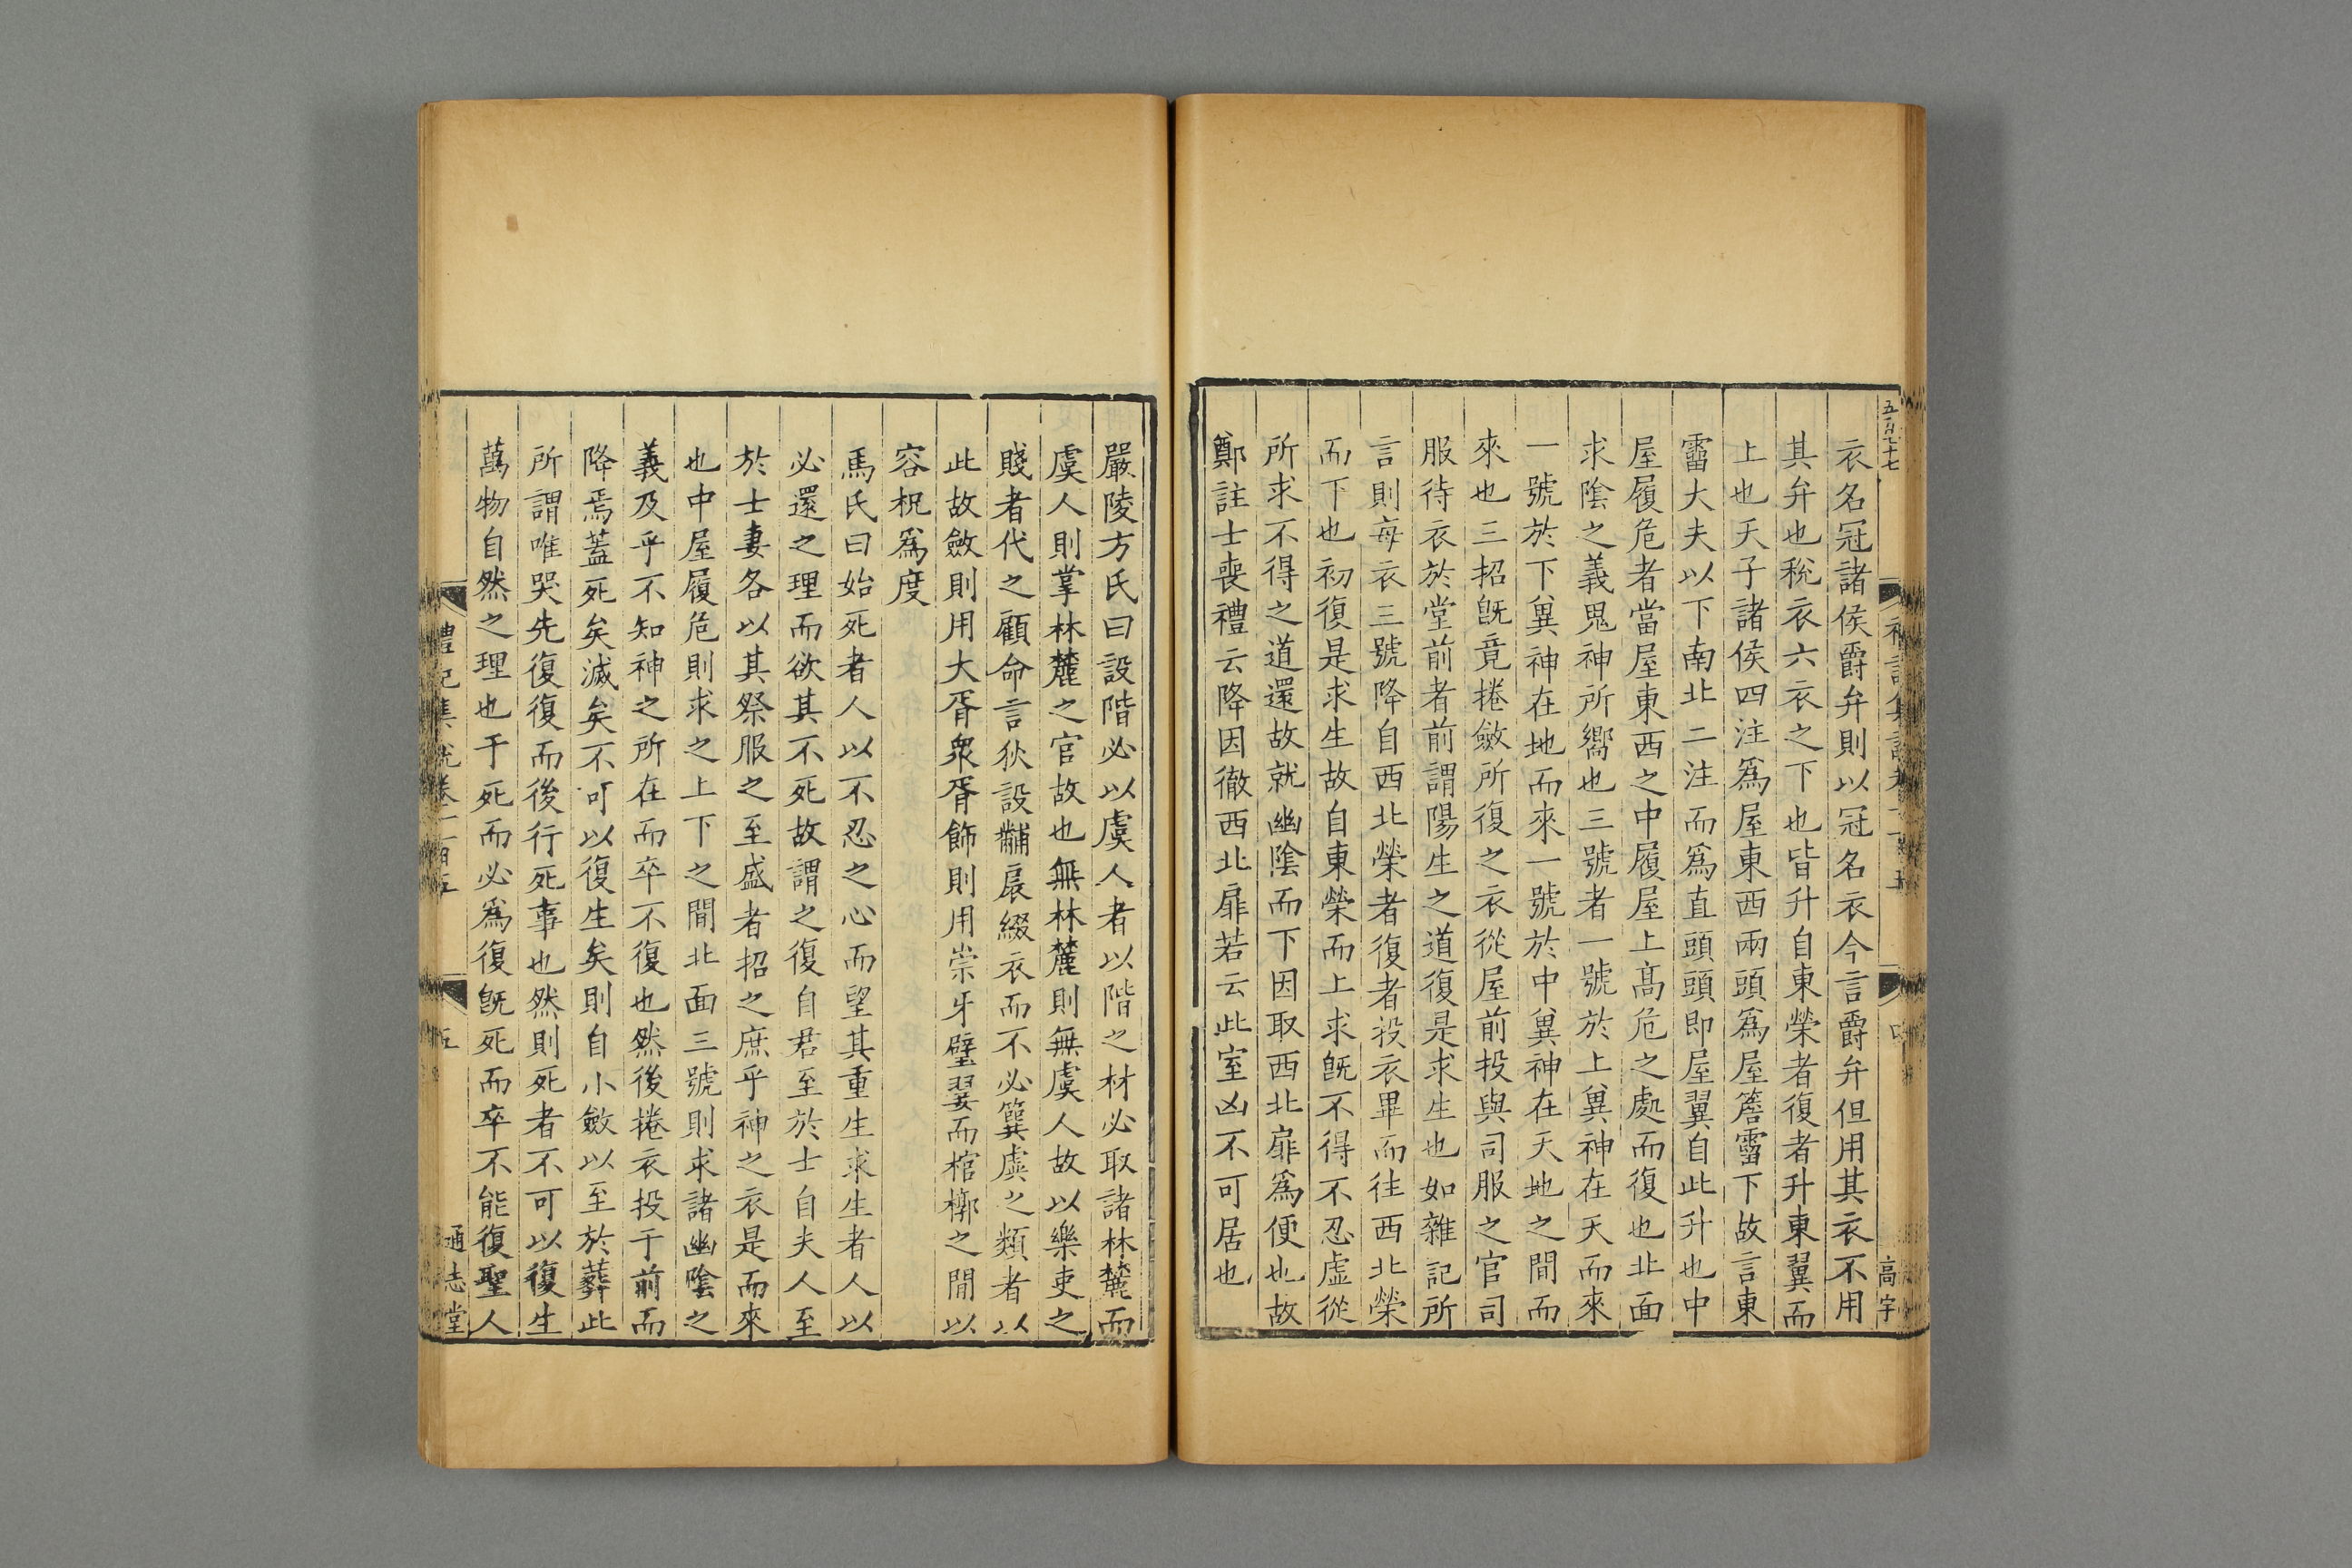 衣名冠諸侯爵弁則以冠名衣今言爵弁但用其衣不用
其弁也稅衣六衣之下也皆升自東榮者復者升東翼而
上也天子諸侯四注爲屋東西兩頭爲屋簷霤下故言東
霤大夫以下南北二注而爲直頭頭即屋翼自此升也中
屋履危者當屋東西之中履屋上高危之處而復也北面
求陰之義鬼神所嚮也三號者一號於上兾神在天而來
一號於下兾神在地而來一號於中兾神在天地之閒而
來也三招旣竟捲斂所復之衣從屋前投與司服之官司
服待衣於堂前者前謂陽生之道復是求生也如雜記所
言則每衣三號降自西北榮者復者投衣畢而往西北榮
而下也初復是求生故自東榮而上求旣不得不忍虛從
所求不得之道還故就幽陰而下因取西北扉爲便也故
鄭註士喪禮云降因徹西北扉若云此室凶不可居也
高字
嚴陵方氏曰設階必以虞人者以階之材必取諸林麓而
虞人則掌林麓之官故也無林麓則無虞人故以樂吏之
賤者代之顧命言狄設黼扆綴衣而不必簨虡之類者以
此故斂則用大胥衆胥飾則用崇牙璧翣而棺槨之閒以
容柷爲度
馬氏曰始死者人以不忍之心而望其重生求生者人以
必還之理而欲其不死故謂之復自君至於士自夫人至
於士妻各以其祭服之至盛者招之庶乎神之衣是而來
也中屋履危則求之上下之閒北面三號則求諸幽陰之
義及乎不知神之所在而卒不復也然後捲衣投于前而
降焉蓋死矣滅矣不可以復生矣則自小斂以至於葬此
所謂唯哭先復復而後行死事也然則死者不可以復生
萬物自然之理也于死而必爲復旣死而卒不能復聖人
禮記集說卷一百五
五
通志堂